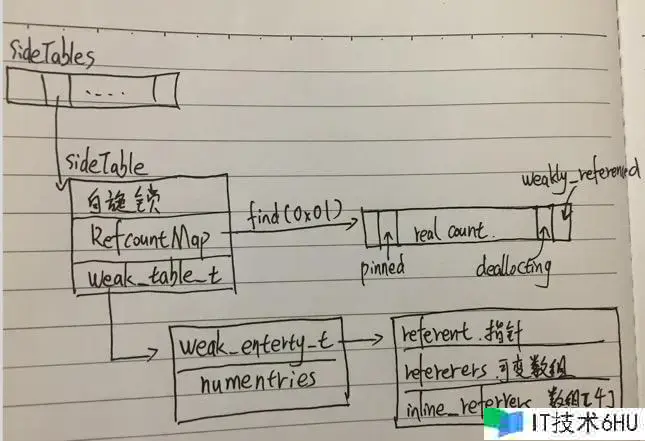 sideTables
.....
sideTable
自旋锁
RefcountMap
weak_table_t
find(0x01)
weakly_referenced
real count.
pinned
deallocting
weak_enterty_t
numentries
referent.指针
refererers.可变数组
inline_referrers 数组[4]
IT技术6HU